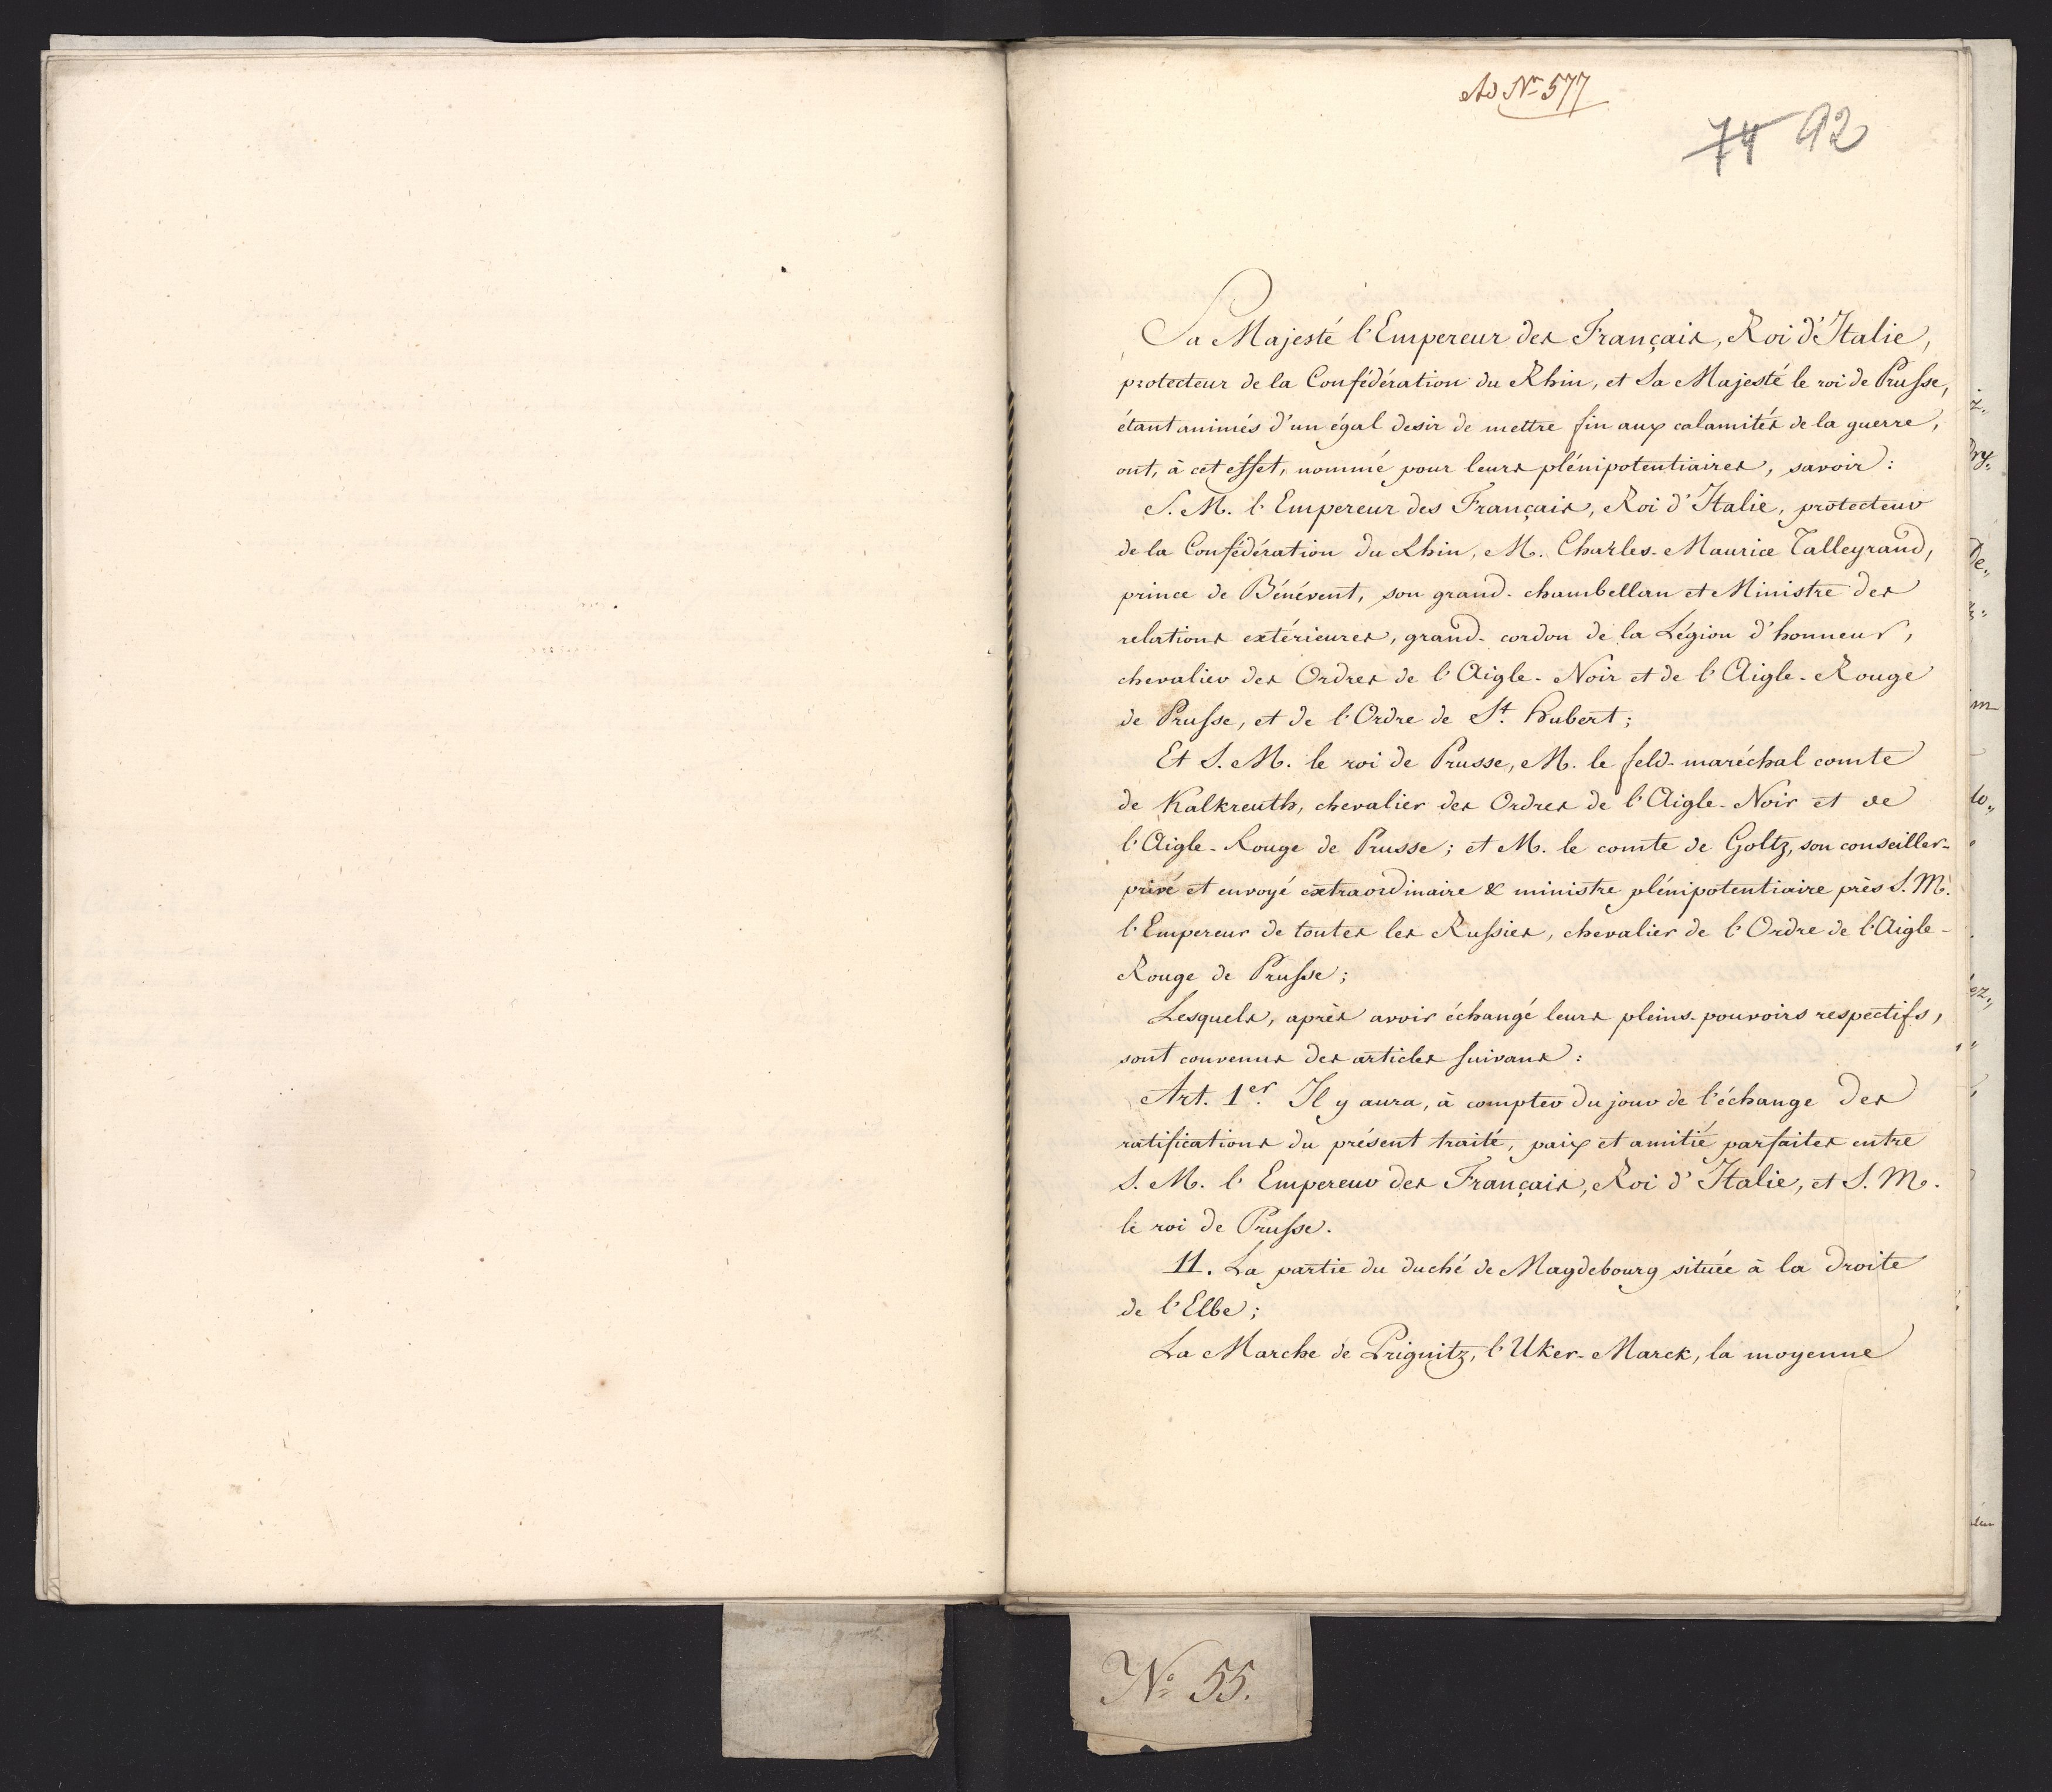 Ad Nr. 577
74 92
Sa Majesté l'Empereur des Français, Roi d'Italie,
protecteur de la Confédération du Rhin, et Sa Majesté le roi de Prusse,
étant animés d'un égal desir de mettre fin aux calamités de la guerre,
ont, à cet effet, nommé pour leurs plénipotentiaires, savoir:
S. M. l'Empereur des Français, Roi d'Italie, protecteur
de la Confédération du Rhin, M. Charles-Maurice Talleyrand,
prince de Bénévent, son grand-chambellan et Ministre des
relations extérieures, grand-cordon de la Légion d'honneur,
chevalier des Ordres de l'Aigle-Noir et de l'Aigle-Rouge
de Prusse, et de l'Ordre de St. Hubert;
Et S. M. le roi de Prusse, M. le feld-maréchal comte
de Kalkreuth, chevalier des Ordres de l'Aigle-Noir et de
l'Aigle-Rouge de Prusse; et M. le comte de Goltz, son conseiller-
privé et envoyé extraordinaire & ministre plénipotentiaire près S. M.
l'Empereur de toutes les Russies, chevalier de l'Ordre de l'Aigle-
Rouge de Prusse;
Lesquels, après avoir échangé leurs pleins-pouvoirs respectifs,
sont convenus des articles suivans:
Art. 1er. Il y aura, à compter du jour de l'échange des
ratifications du présent traité, paix et amitié parfaites entre
S. M. l'Empereur des Français, Roi d'Italie, et S. M.
le roi de Prusse.
11. La partie du duché de Magdebourg située à la droite
de l'Elbe;
La Marche de Prignitz, l'Uker-Marck, la moyenne
No. 55.